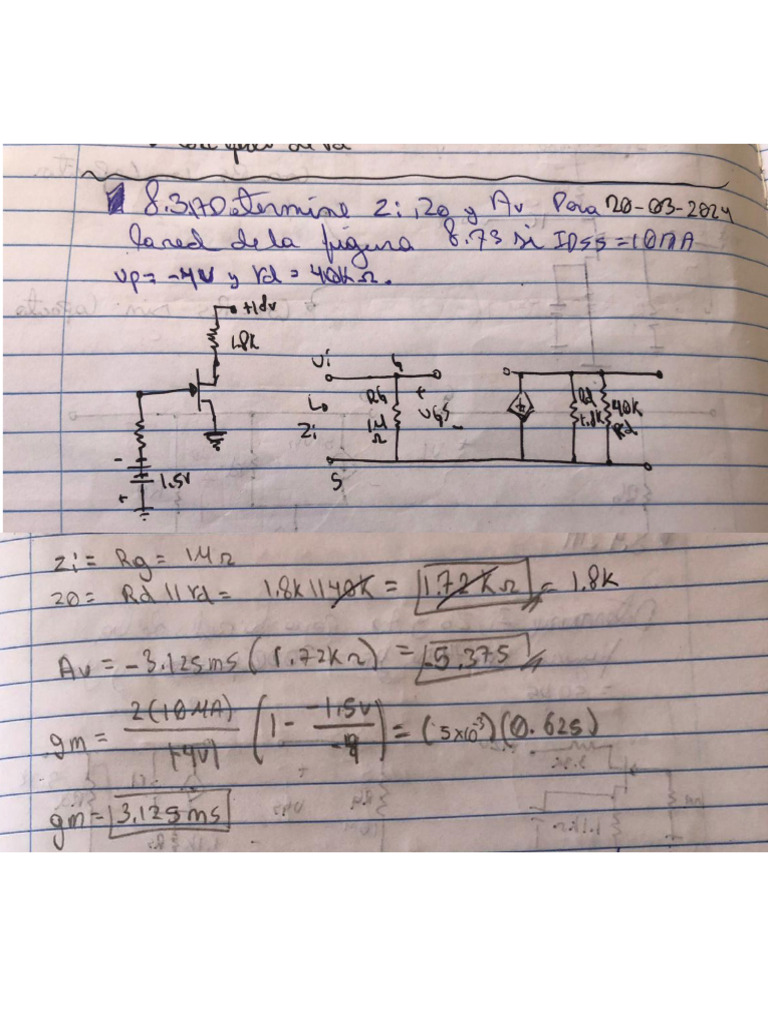 8.3. Determine Zi, Zo y Av Para 20-03-2024
la red de la figura 8.73 si IDSS = 10MA
vp= -4v y rd = 40kΩ.
+18v
1.8K
1.5v
-
+
Vi
G
Zi
RG
1M
Ω
VGS
-
S
Rd
1.8K
40K
Rd
Zi = Rg = 1MΩ
Zo = Rd || rd = 1.8K || 40K = 1.72KΩ = 1.8K
Av = -3.125ms (1.72KΩ) = -5.375
gm = 2(10MA) / |-4V| (1 - -1.5V / -4) = (5x10⁻³)(0.625)
gm = 3.125ms